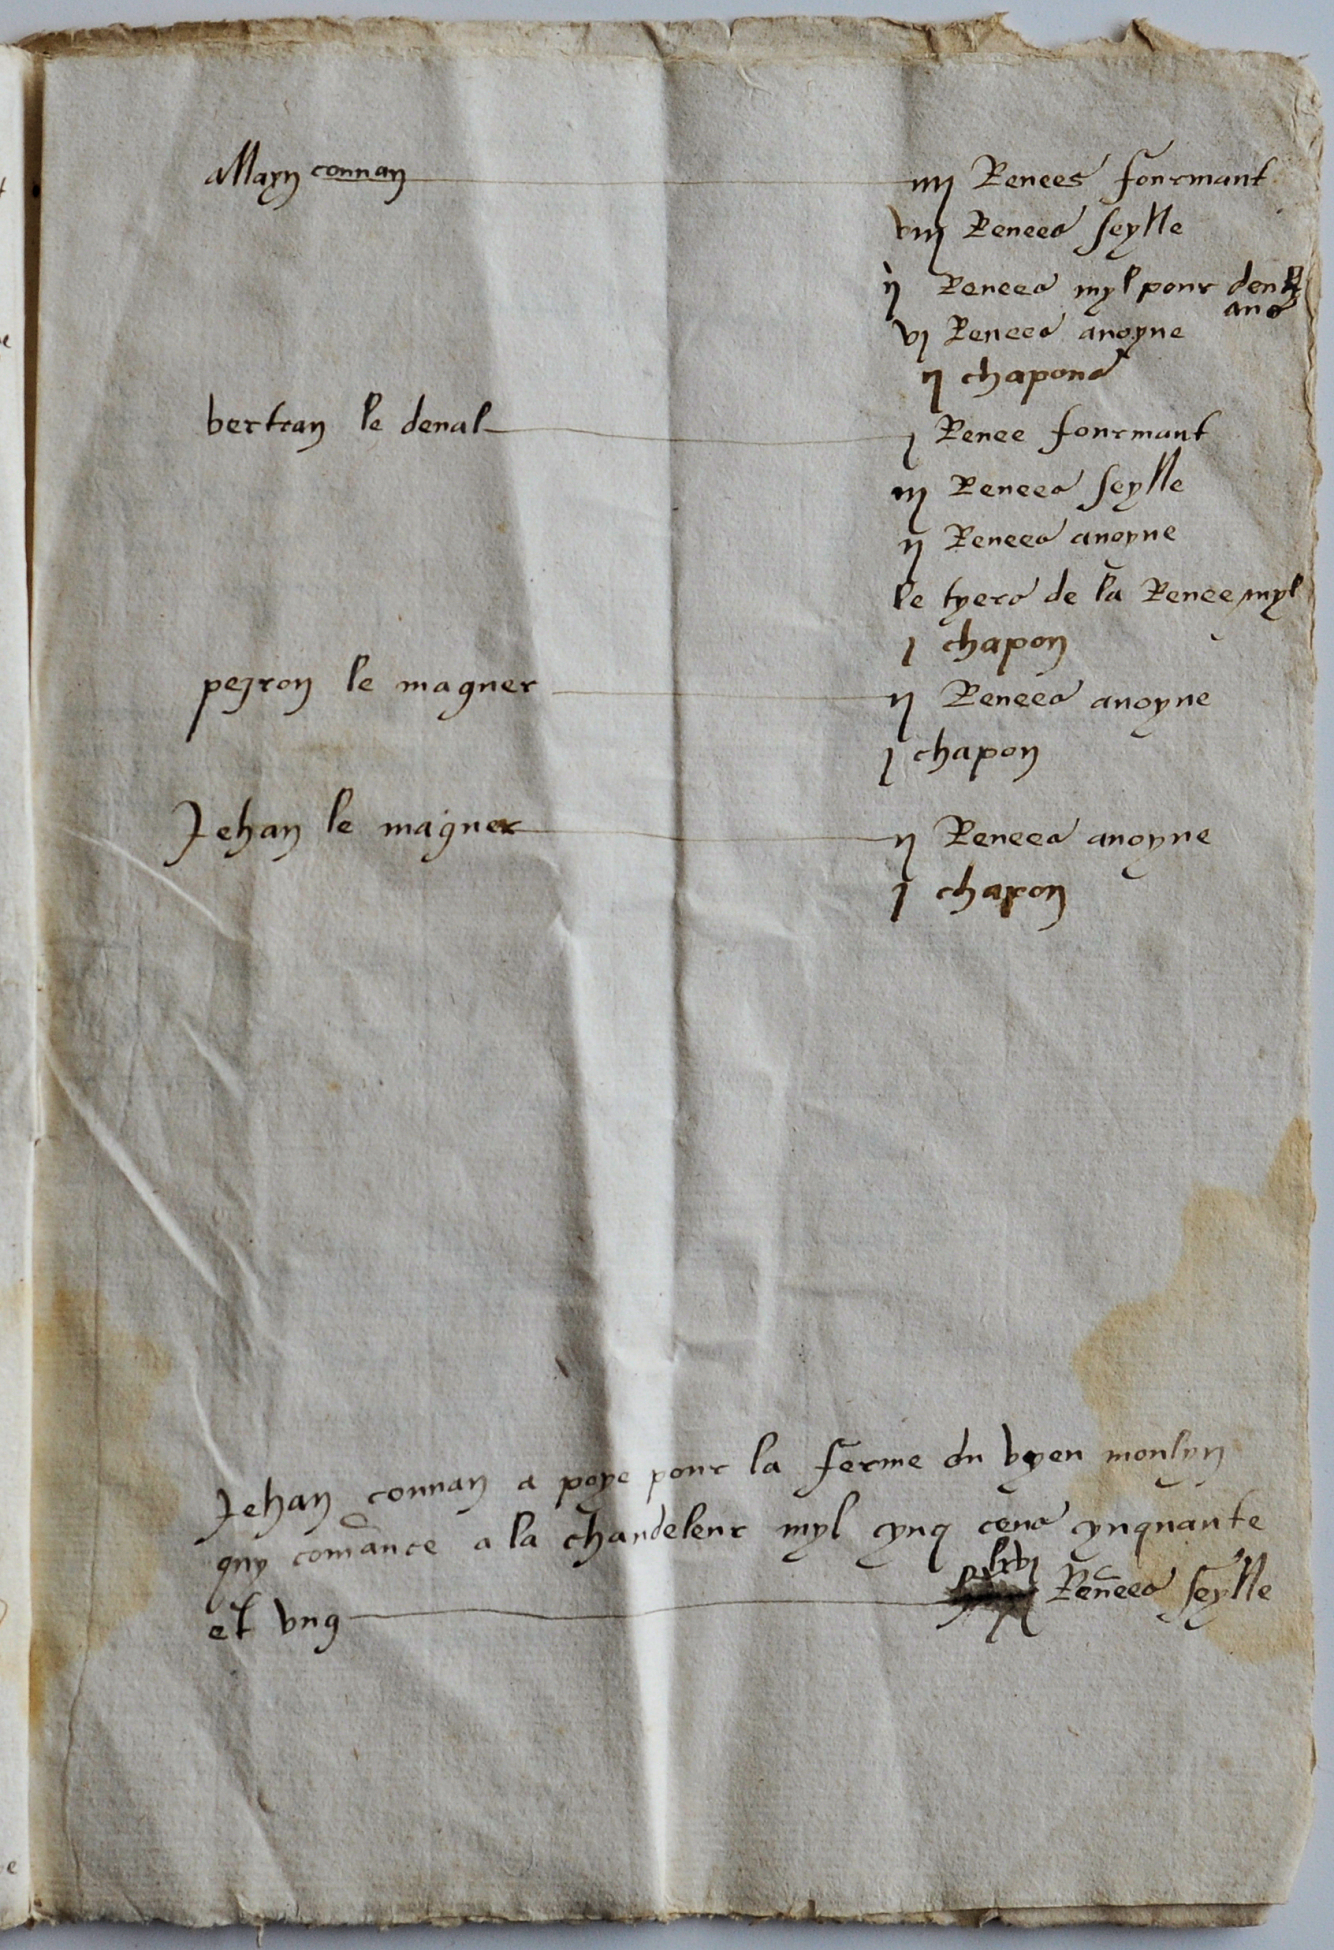 allayn connan iiij Renees fourmant
viij Renees seylle
ij Renees myl pour deux
ans
vi Renees avoyne
ij chapons
bertran le denal j Renee fourmant
iij Renees seylle
ij Renees avoyne
le tyers de la Renee myl
j chapon
peyron le magner ij Renees avoyne
j chapon
Jehan le magner ij Renees avoyne
j chapon
Jehan connan a poye pour la ferme du vyen moulyn
quy comance a la chandeleur myl cynq cens cynquante
et ung Renees seylle